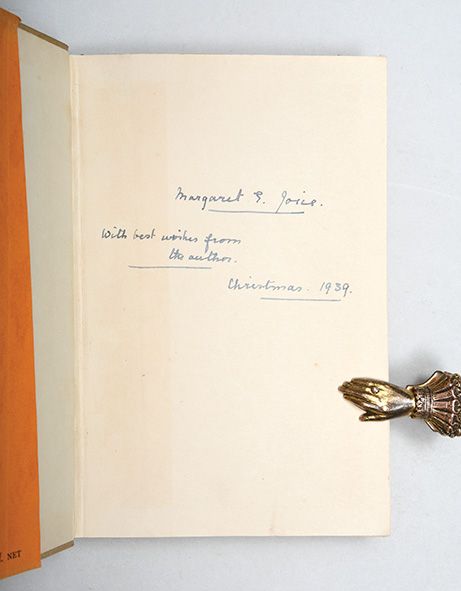 Margaret E. Joice.
With best wishes from
the author.
Christmas. 1939.
NET